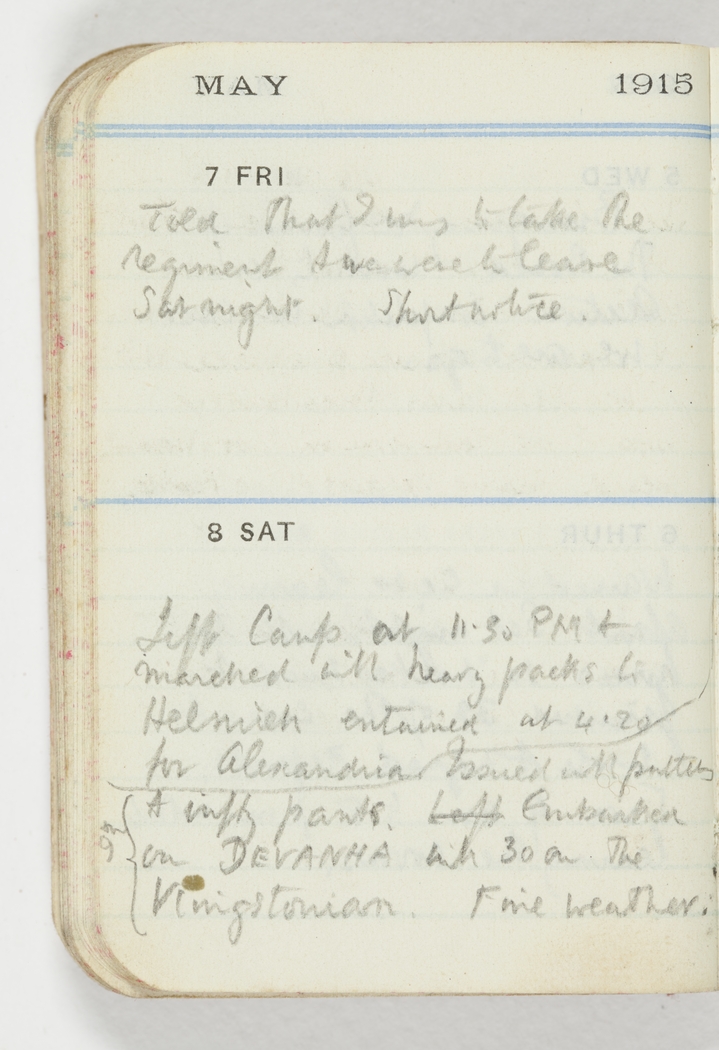 MAY 1915
7 FRI
Told that I was to take the
regiment & we were to leave
Sat night. Short notice.
8 SAT
Left Camp at 11.30 PM &
marched with heavy packs to
Helmieh entained at 4.20
for Alexandria Issued with puttees
& infty pants. Left Embarked
on DEVANHA with 30 on the
Kingstonian. Fine weather.